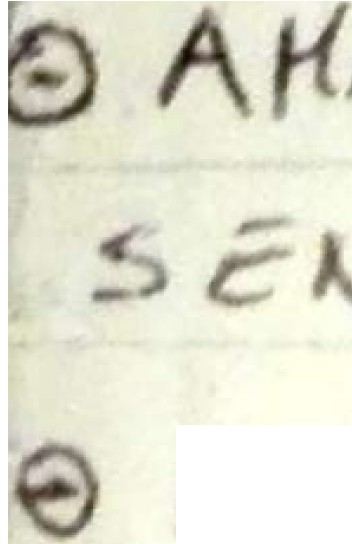 ⊖ AH
SEN
⊖